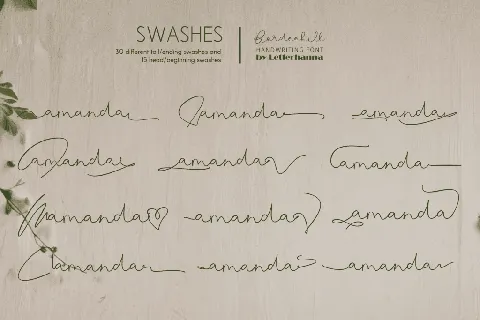 SWASHES
30 different tail/ending swashes and
15 head/beginning swashes
HANDWRITING FONT
by Letterhanna
amanda amanda amanda
amanda amanda amanda
amanda amanda amanda
amanda amanda amanda